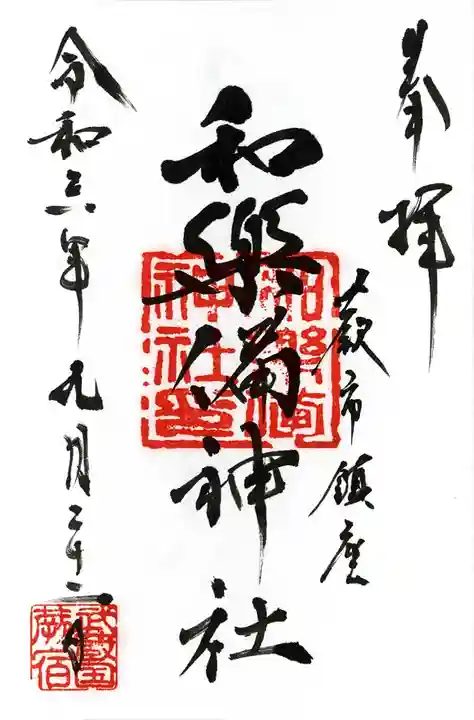 奉拝
蕨市鎮座
和樂備神社
和樂備
神社印
令和六年九月二十二日
武蔵國
蕨宿